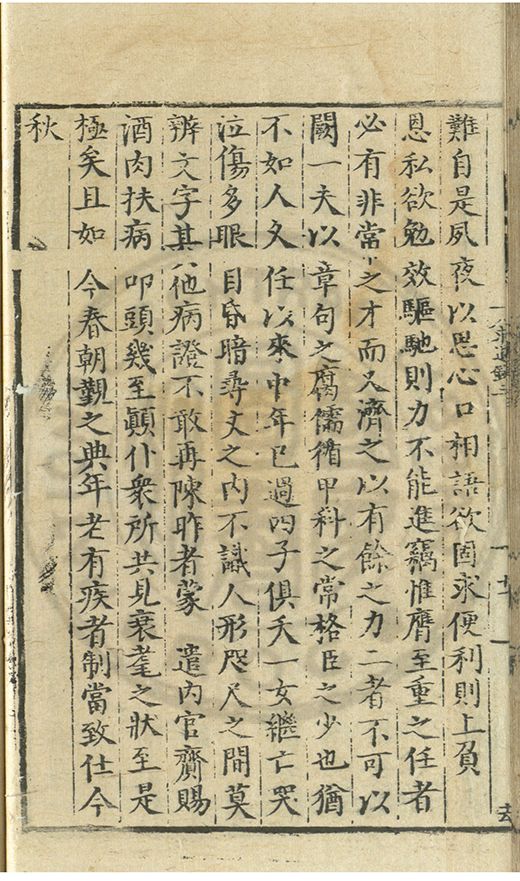 難自是夙夜以思心口相語欲固求便利則上負
恩私欲勉效驅馳則力不能進竊惟膺至重之任者
必有非常之才而又濟之以有餘之力二者不可以
闕一夫以章句之腐儒循甲科之常格臣之少也猶
不如人文任以來中年已過四子俱夭一女繼亡哭
泣傷多眼目昏暗尋丈之內不識人形咫尺之間莫
辨文字其他病證不敢再陳昨者蒙 遣內官齎賜
酒肉扶病叩頭幾至顛仆衆所共見衰耄之狀至是
極矣且如今春朝覲之典年老有疾者制當致仕今
秋